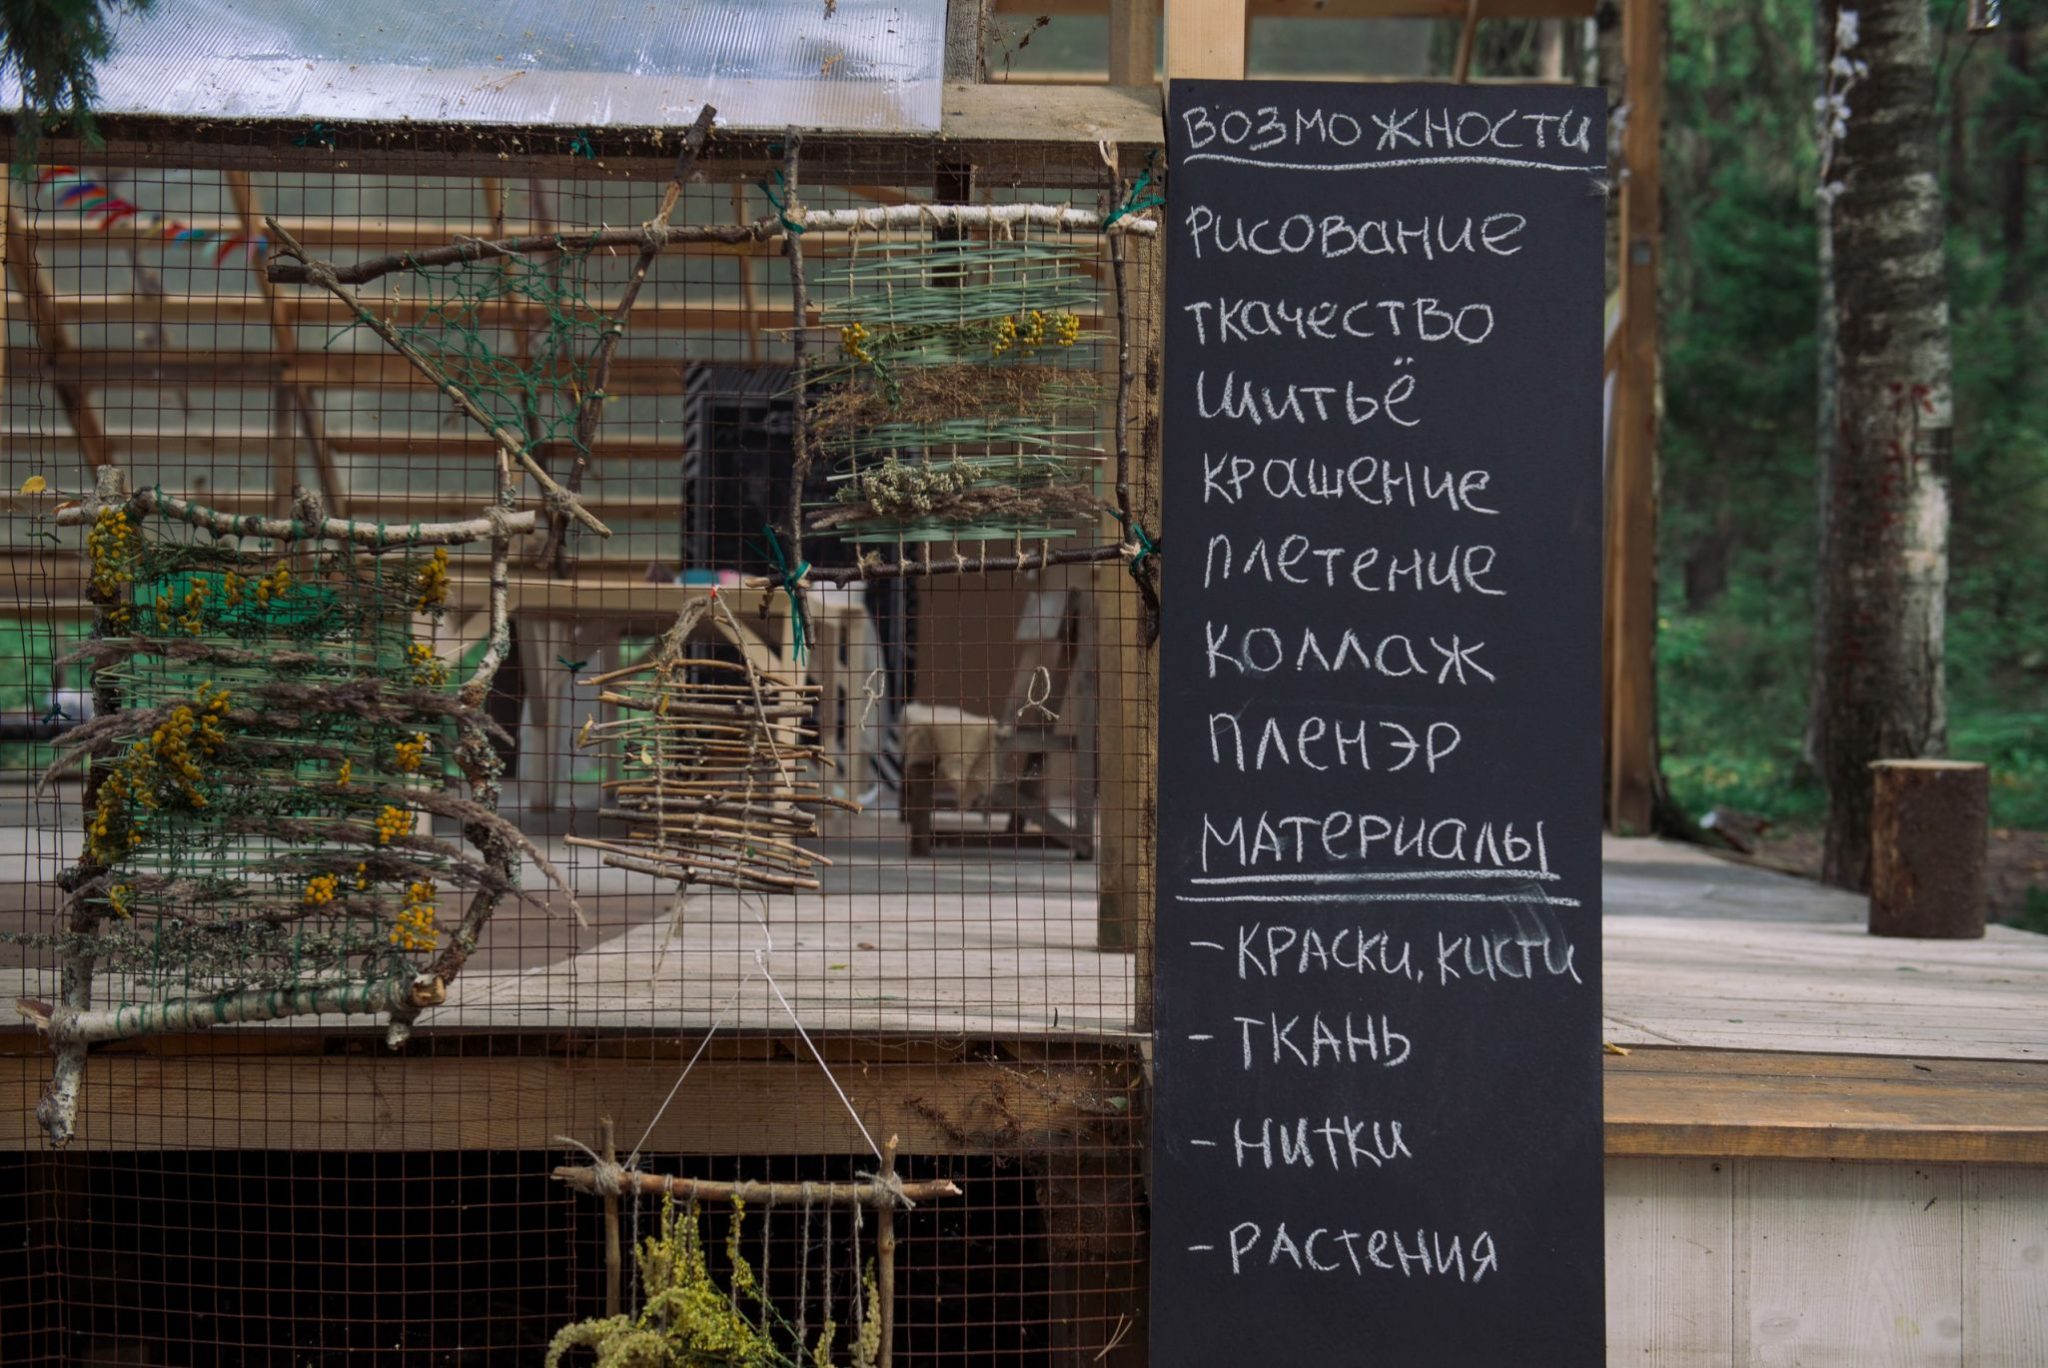 ВОЗМОЖНОСТИ
РИСОВАНИЕ
ТКАЧЕСТВО
ШИТЬЁ
КРАШЕНИЕ
ПЛЕТЕНИЕ
КОЛЛАЖ
ПЛЕНЭР
МАТЕРИАЛЫ
- КРАСКИ, КИСТИ
- ТКАНЬ
- НИТКИ
- РАСТЕНИЯ